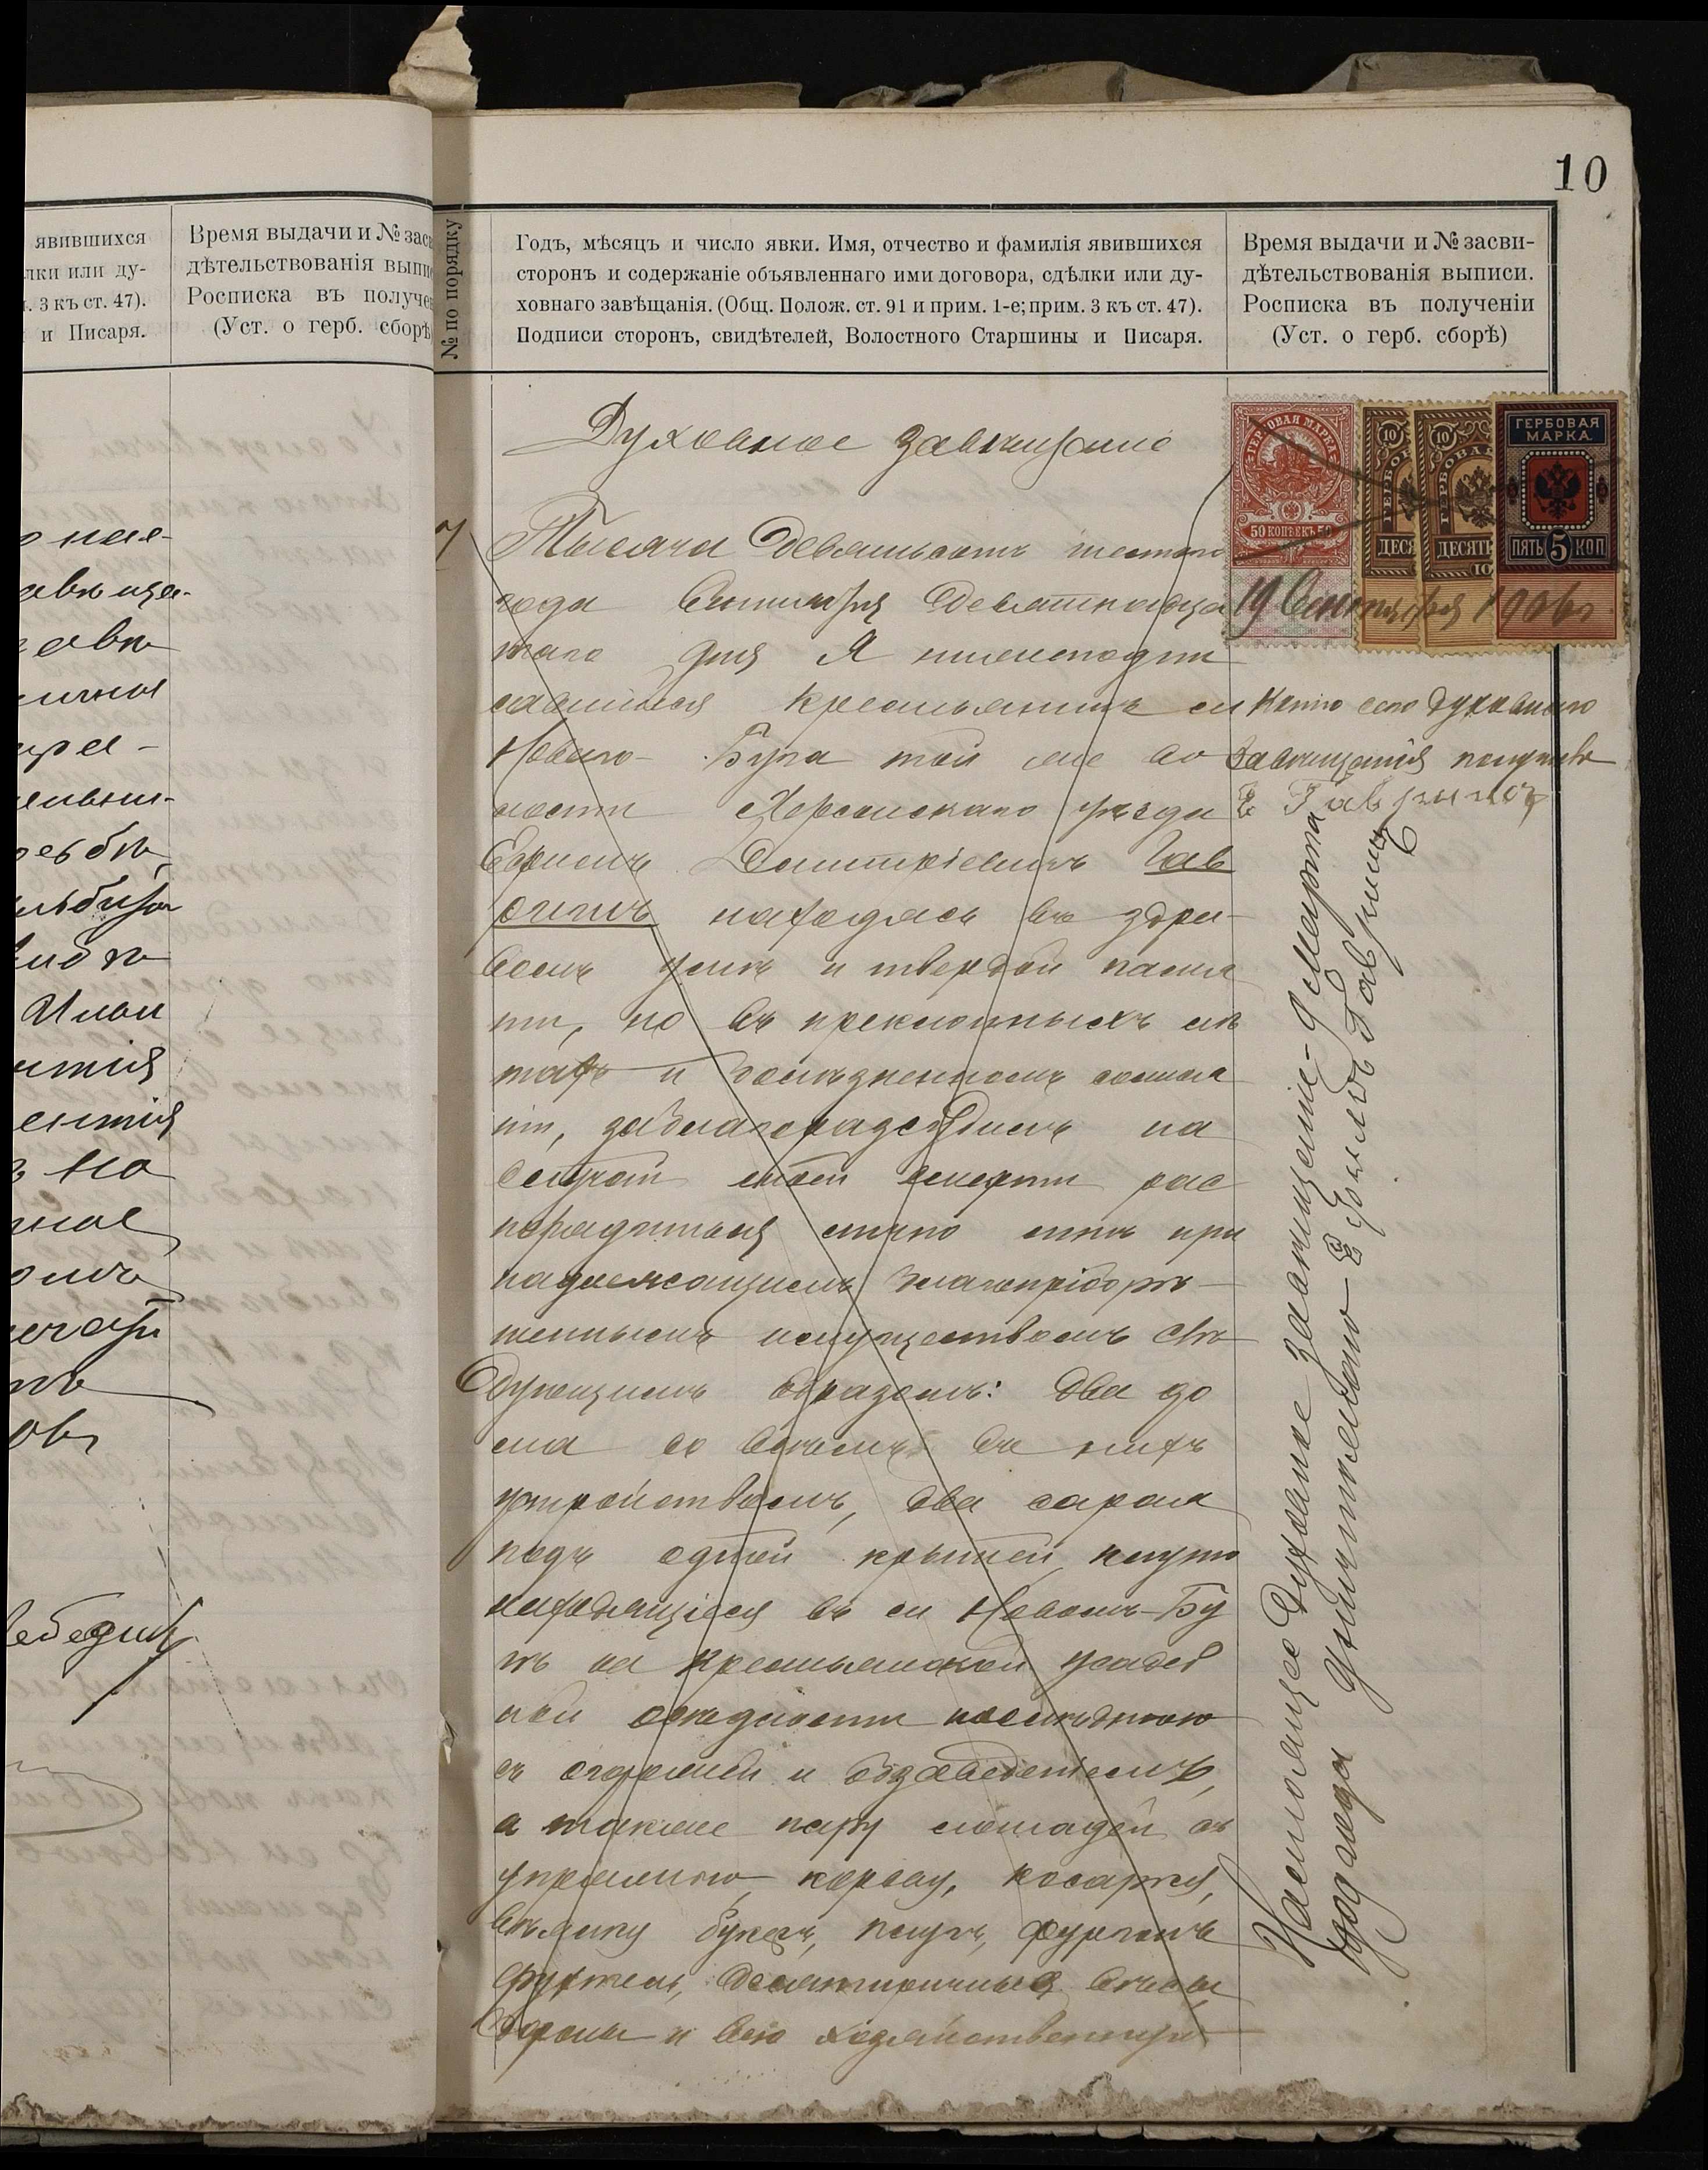 10
явившихся
лки или ду-
. 3 къ ст. 47).
и Писаря.
Время выдачи и № засв
дѣтельствованія выпи
Росписка въ получе
(Уст. о герб. сборѣ
№ по порядку
Годъ, мѣсяцъ и число явки. Имя, отчество и фамилія явившихся
сторонъ и содержаніе объявленнаго ими договора, сдѣлки или ду-
ховнаго завѣщанія. (Общ. Полож. ст. 91 и прим. 1-е; прим. 3 къ ст. 47).
Подписи сторонъ, свидѣтелей, Волостного Старшины и Писаря.
Время выдачи и № засви-
дѣтельствованія выписи.
Росписка въ полученіи
(Уст. о герб. сборѣ)
Духовное завѣщаніе
7
Тысяча девятьсотъ шестого
года Сентября девятнадца
таго дня Я нижеподпи
савшійся крестьянинъ с.
Новаго-Буга той же во
лости Херсонскаго уѣзда
Ефимъ Дмитріевичъ Гав
рищъ находясь въ здра-
вомъ умѣ и твердой памя
ти, но въ преклонныхъ лѣ
тахъ и болѣзненномъ состоя
ніи, заблагоразсудилъ на
случай моей смерти рас
порядиться
надлежащимъ благопріобрѣ-
теннымъ имуществомъ слѣ
дующимъ образомъ: два до
ма со всѣмъ въ нихъ
устройствомъ, два сарая
подъ одной крышей, клуню
находящіеся въ с. Новомъ-Бу
гѣ на крестьянской усадеб
ной осѣдлости послѣднюю
съ огорожей и обзаведеніемъ,
а также пару лошадей съ
упряжью, корову, косарку,
вѣялку букеръ, плугъ, фургонъ
десятиричные вѣсы,
бороны и всю хозяйственную
ГЕРБОВАЯ МАРКА
50 КОПѢЕКЪ 50
10
ДЕСЯ
10
ДЕСЯТЬ
10
ГЕРБОВАЯ
МАРКА
ПЯТЬ 5 КОП
19 Сентября 1906 г.
Копію сего духовного
завѣщанія получилъ
Е Гаврищъ
Настоящее духовное завѣщаніе - 9 Марта
1909 года уничтожено Ефимъ Гаврищъ